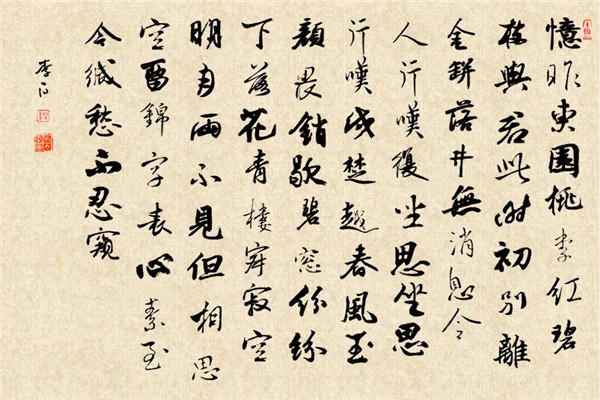 憶昨東園桃李紅碧
枝與君此時初別離
金鉼落井無消息令
人行嘆復坐思坐思
行嘆成楚越春風玉
顏畏銷歇碧窓紛紛
下落花青樓寂寂空
明月兩不見但相思
空留錦字表心素至
今緘愁不忍窺
李白